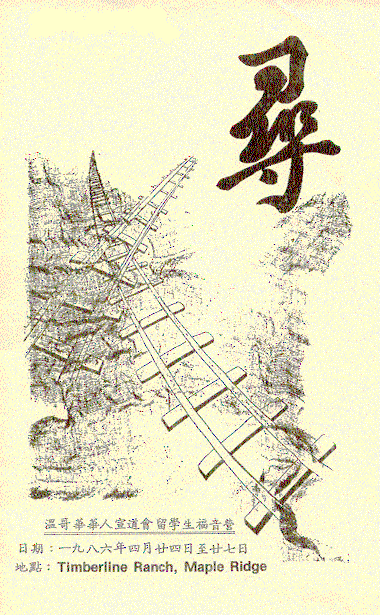 尋
溫哥華華人宣道會留學生福音營
日期：一九八六年四月廿四日至廿七日
地點：Timberline Ranch, Maple Ridge